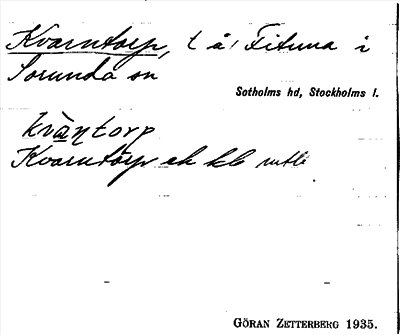 Kvarntorp, t å/ Fituna i
Sorunda sn
Sotholms hd, Stockholms l.
kvàṇtorp
Kvarntorp ek kb
GÖRAN ZETTERBERG 1935.